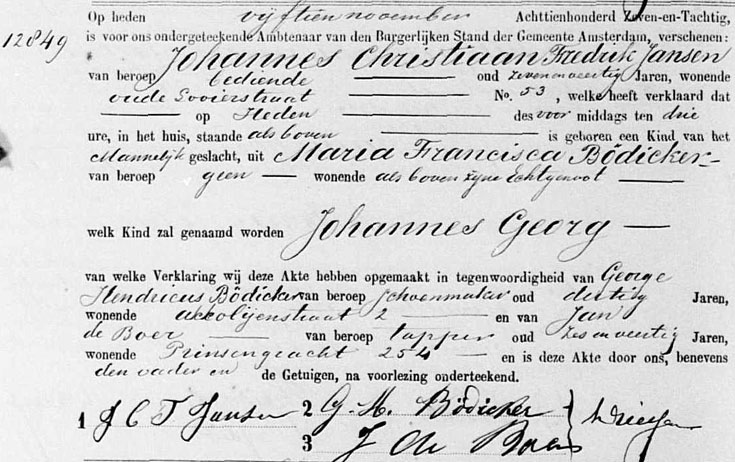 Op heden vijftien november Achttienhonderd Zeven-en-Tachtig,
12849 is voor ons ondergeteekende Ambtenaar van den Burgerlijken Stand der Gemeente Amsterdam, verschenen:
Johannes Christiaan Fredrik Jansen
van beroep bediende oud zevenenveertig Jaren, wonende
oude Looierstraat No. 53, welke heeft verklaard dat
op Heden des voor middags ten drie
ure, in het huis, staande als boven is geboren een Kind van het
Mannelijk geslacht, uit Maria Francisca Bödicker
van beroep geen wonende als boven zyne Echtgenoot
welk Kind zal genaamd worden Johannes Georg
van welke Verklaring wij deze Akte hebben opgemaakt in tegenwoordigheid van George
Hendricus Bödicker van beroep schoenmaker oud dertig Jaren,
wonende 2 en van Jan
de Boer van beroep tapper oud zesenveertig Jaren,
wonende Prinsengracht 254 en is deze Akte door ons, benevens
den vader en de Getuigen, na voorlezing onderteekend.
1 J C F Jansen 2 G. H. Bödicker
3 J de Boer